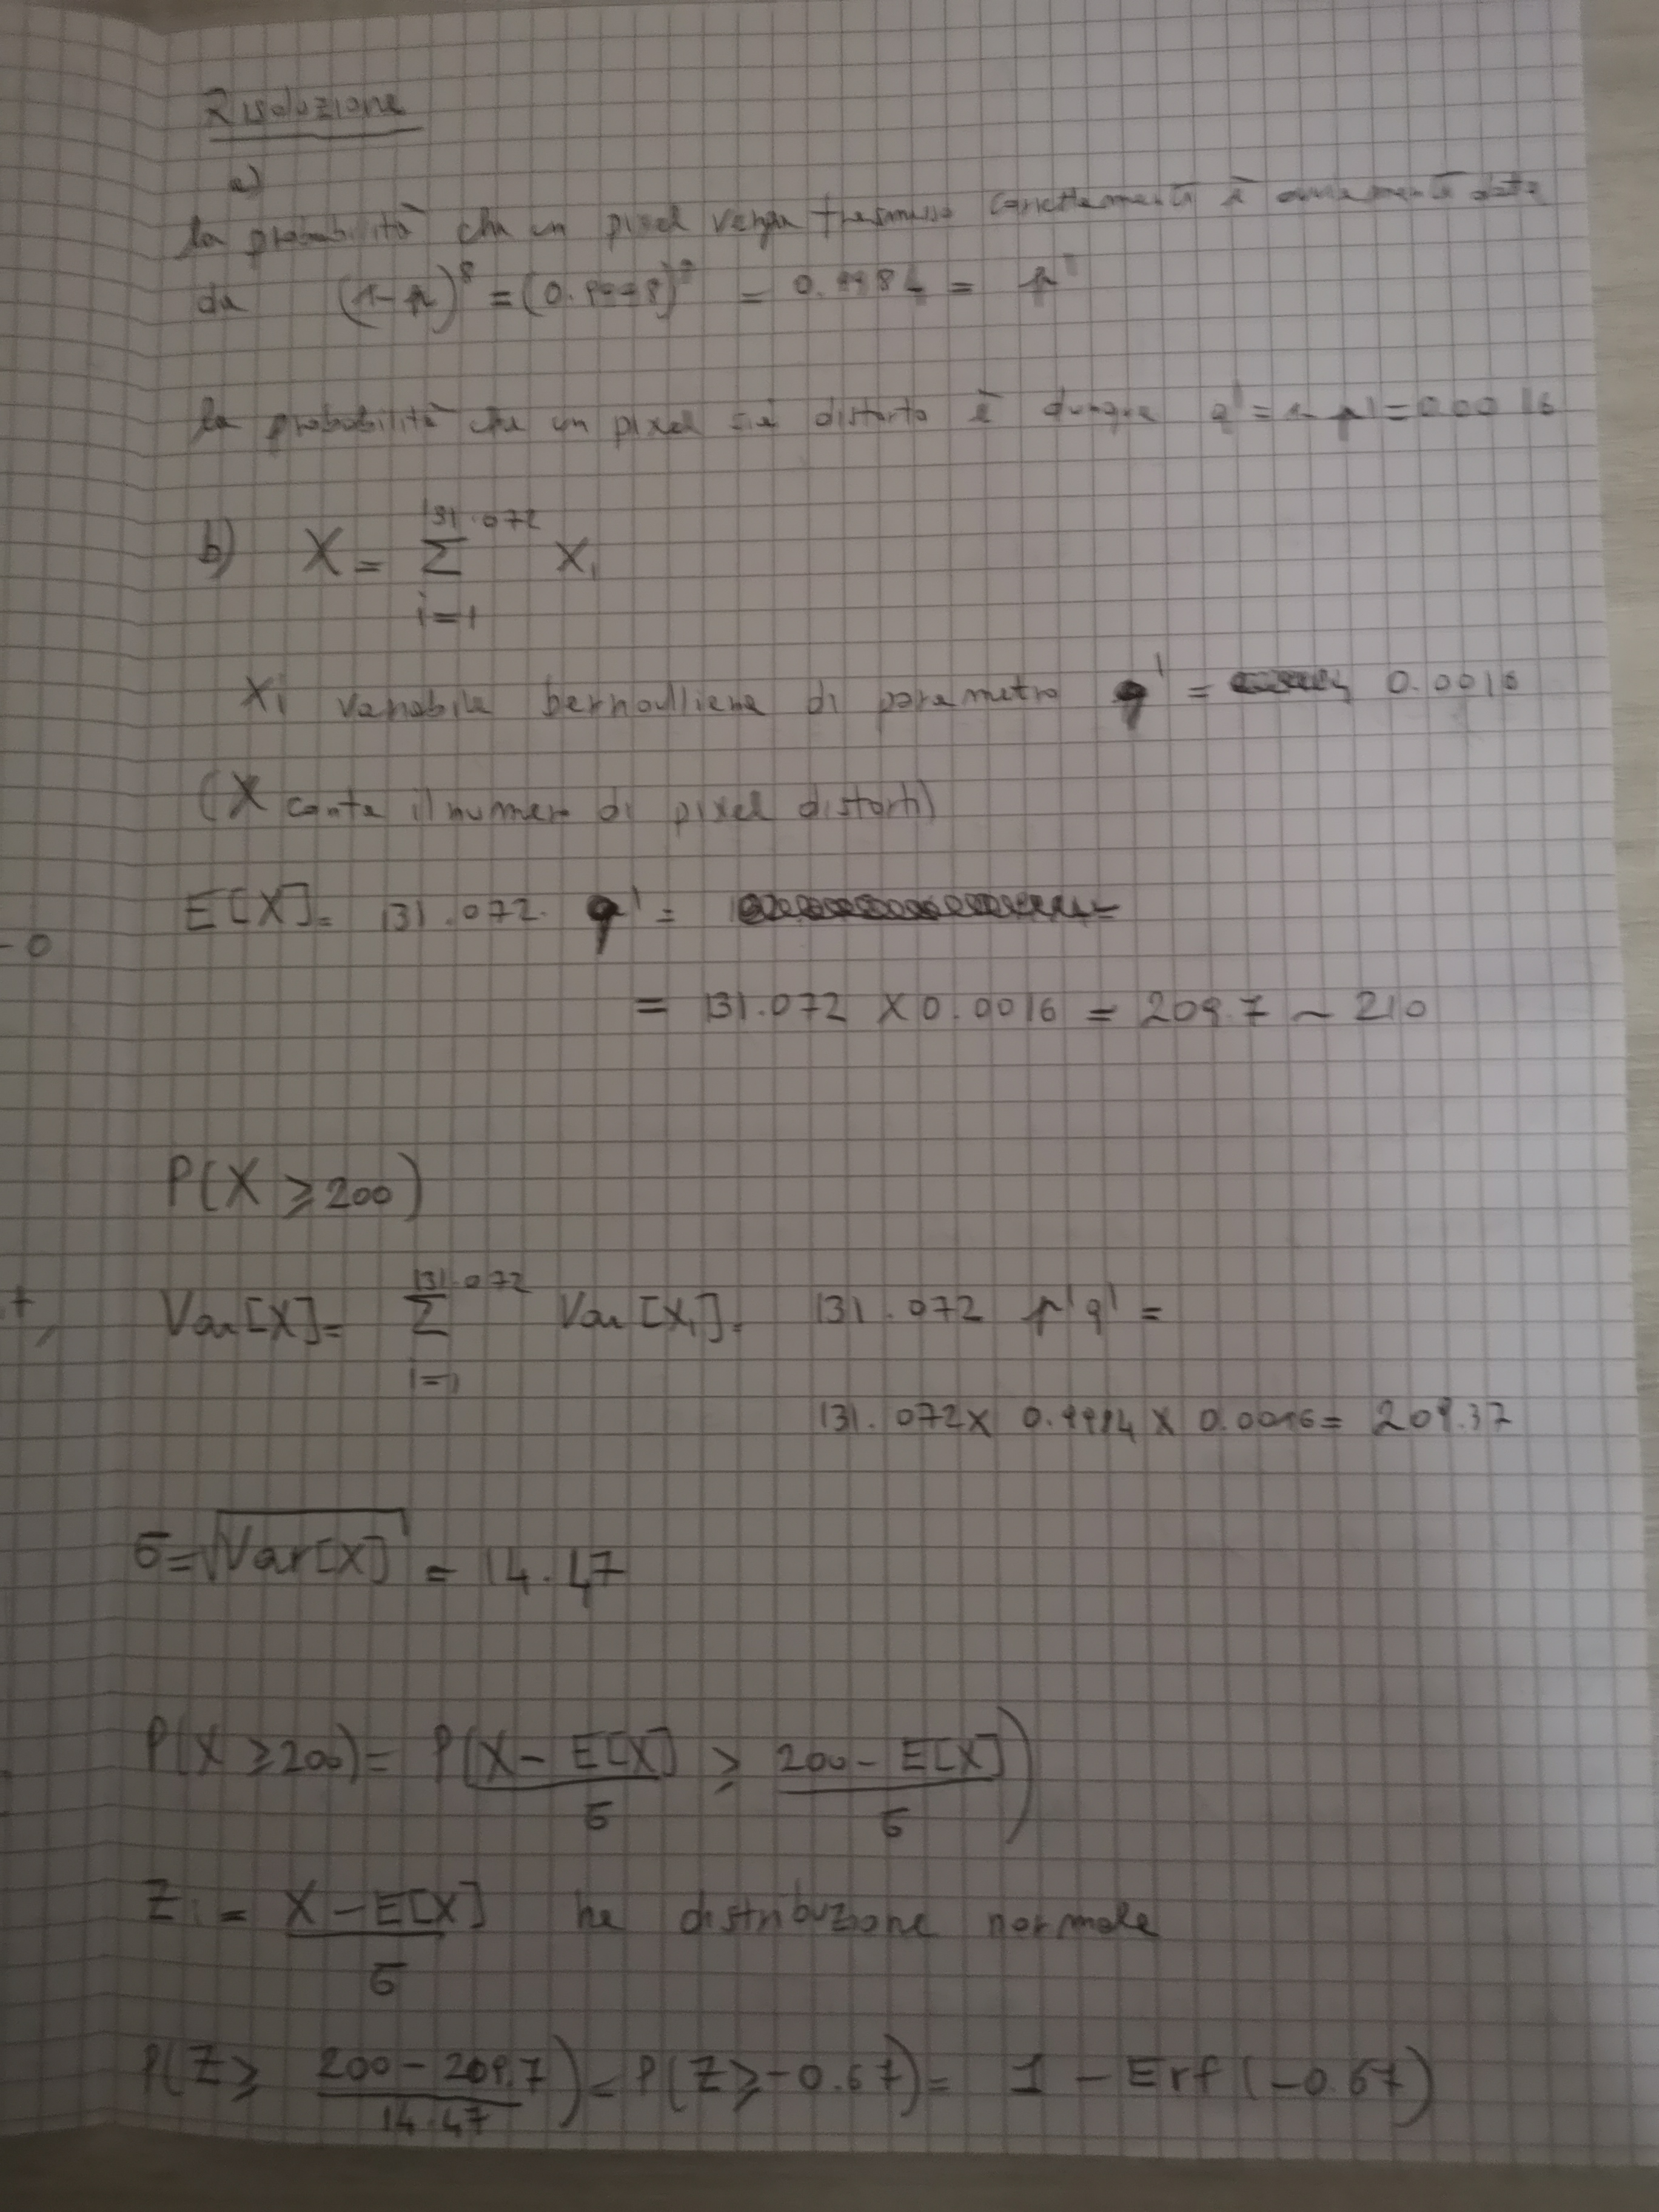 Risoluzione
a)
la probabilità che un pixel venga trasmesso correttamente è ovviamente data
da (1-p)^8 = (0.9998)^8 = 0.9984 = p'
la probabilità che un pixel sia distorto è dunque q' = 1-p' = 0.0016
b) X = Σ_{i=1}^{131.072} X_i
Xi variabile bernoulliana di parametro q' = 0.0016
(X conta il numero di pixel distorti)
E[X] = 131.072 · q' =
-0
= 131.072 × 0.0016 = 209.7 ~ 210
P(X ≥ 200)
Var[X] = Σ_{i=1}^{131.072} Var[X_i] = 131.072 p'q' =
131.072 × 0.9984 × 0.0016 = 209.37
σ = √Var[X] = 14.47
P(X ≥ 200) = P((X - E[X])/σ ≥ (200 - E[X])/σ)
Z = (X - E[X])/σ ha distribuzione normale
P(Z ≥ (200 - 209.7)/14.47) = P(Z ≥ -0.67) = 1 - Erf(-0.67)